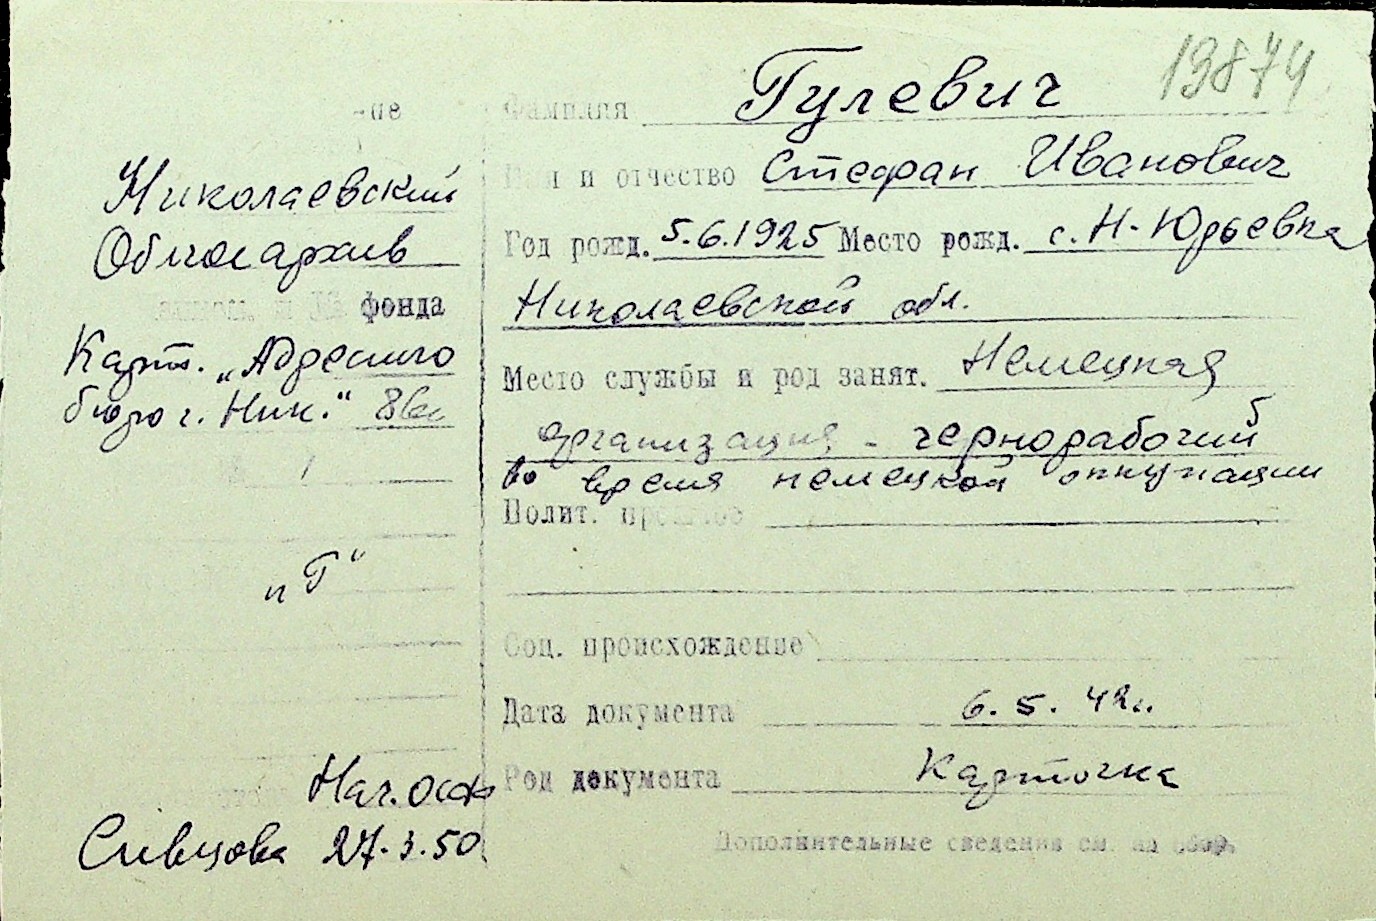 13874
Фамилия Гулевич
Имя и отчество Стефан Иванович
Год рожд. 5.6.1925 Место рожд. с. Н-Юрьевка
Николаевской обл.
Место службы и род занят. Немецкая
организация - чернорабочий
во время немецкой оккупации
Полит. прошлое
Соц. происхождение
Дата документа 6.5.42г.
Род документа Карточка
Дополнительные сведения см. на обор.
Николаевский
Облгосархив
фонда
Карт. „Адресного
бюро г. Ник."
„Г"
Нач. ОСФ
Сивцова 27.3.50